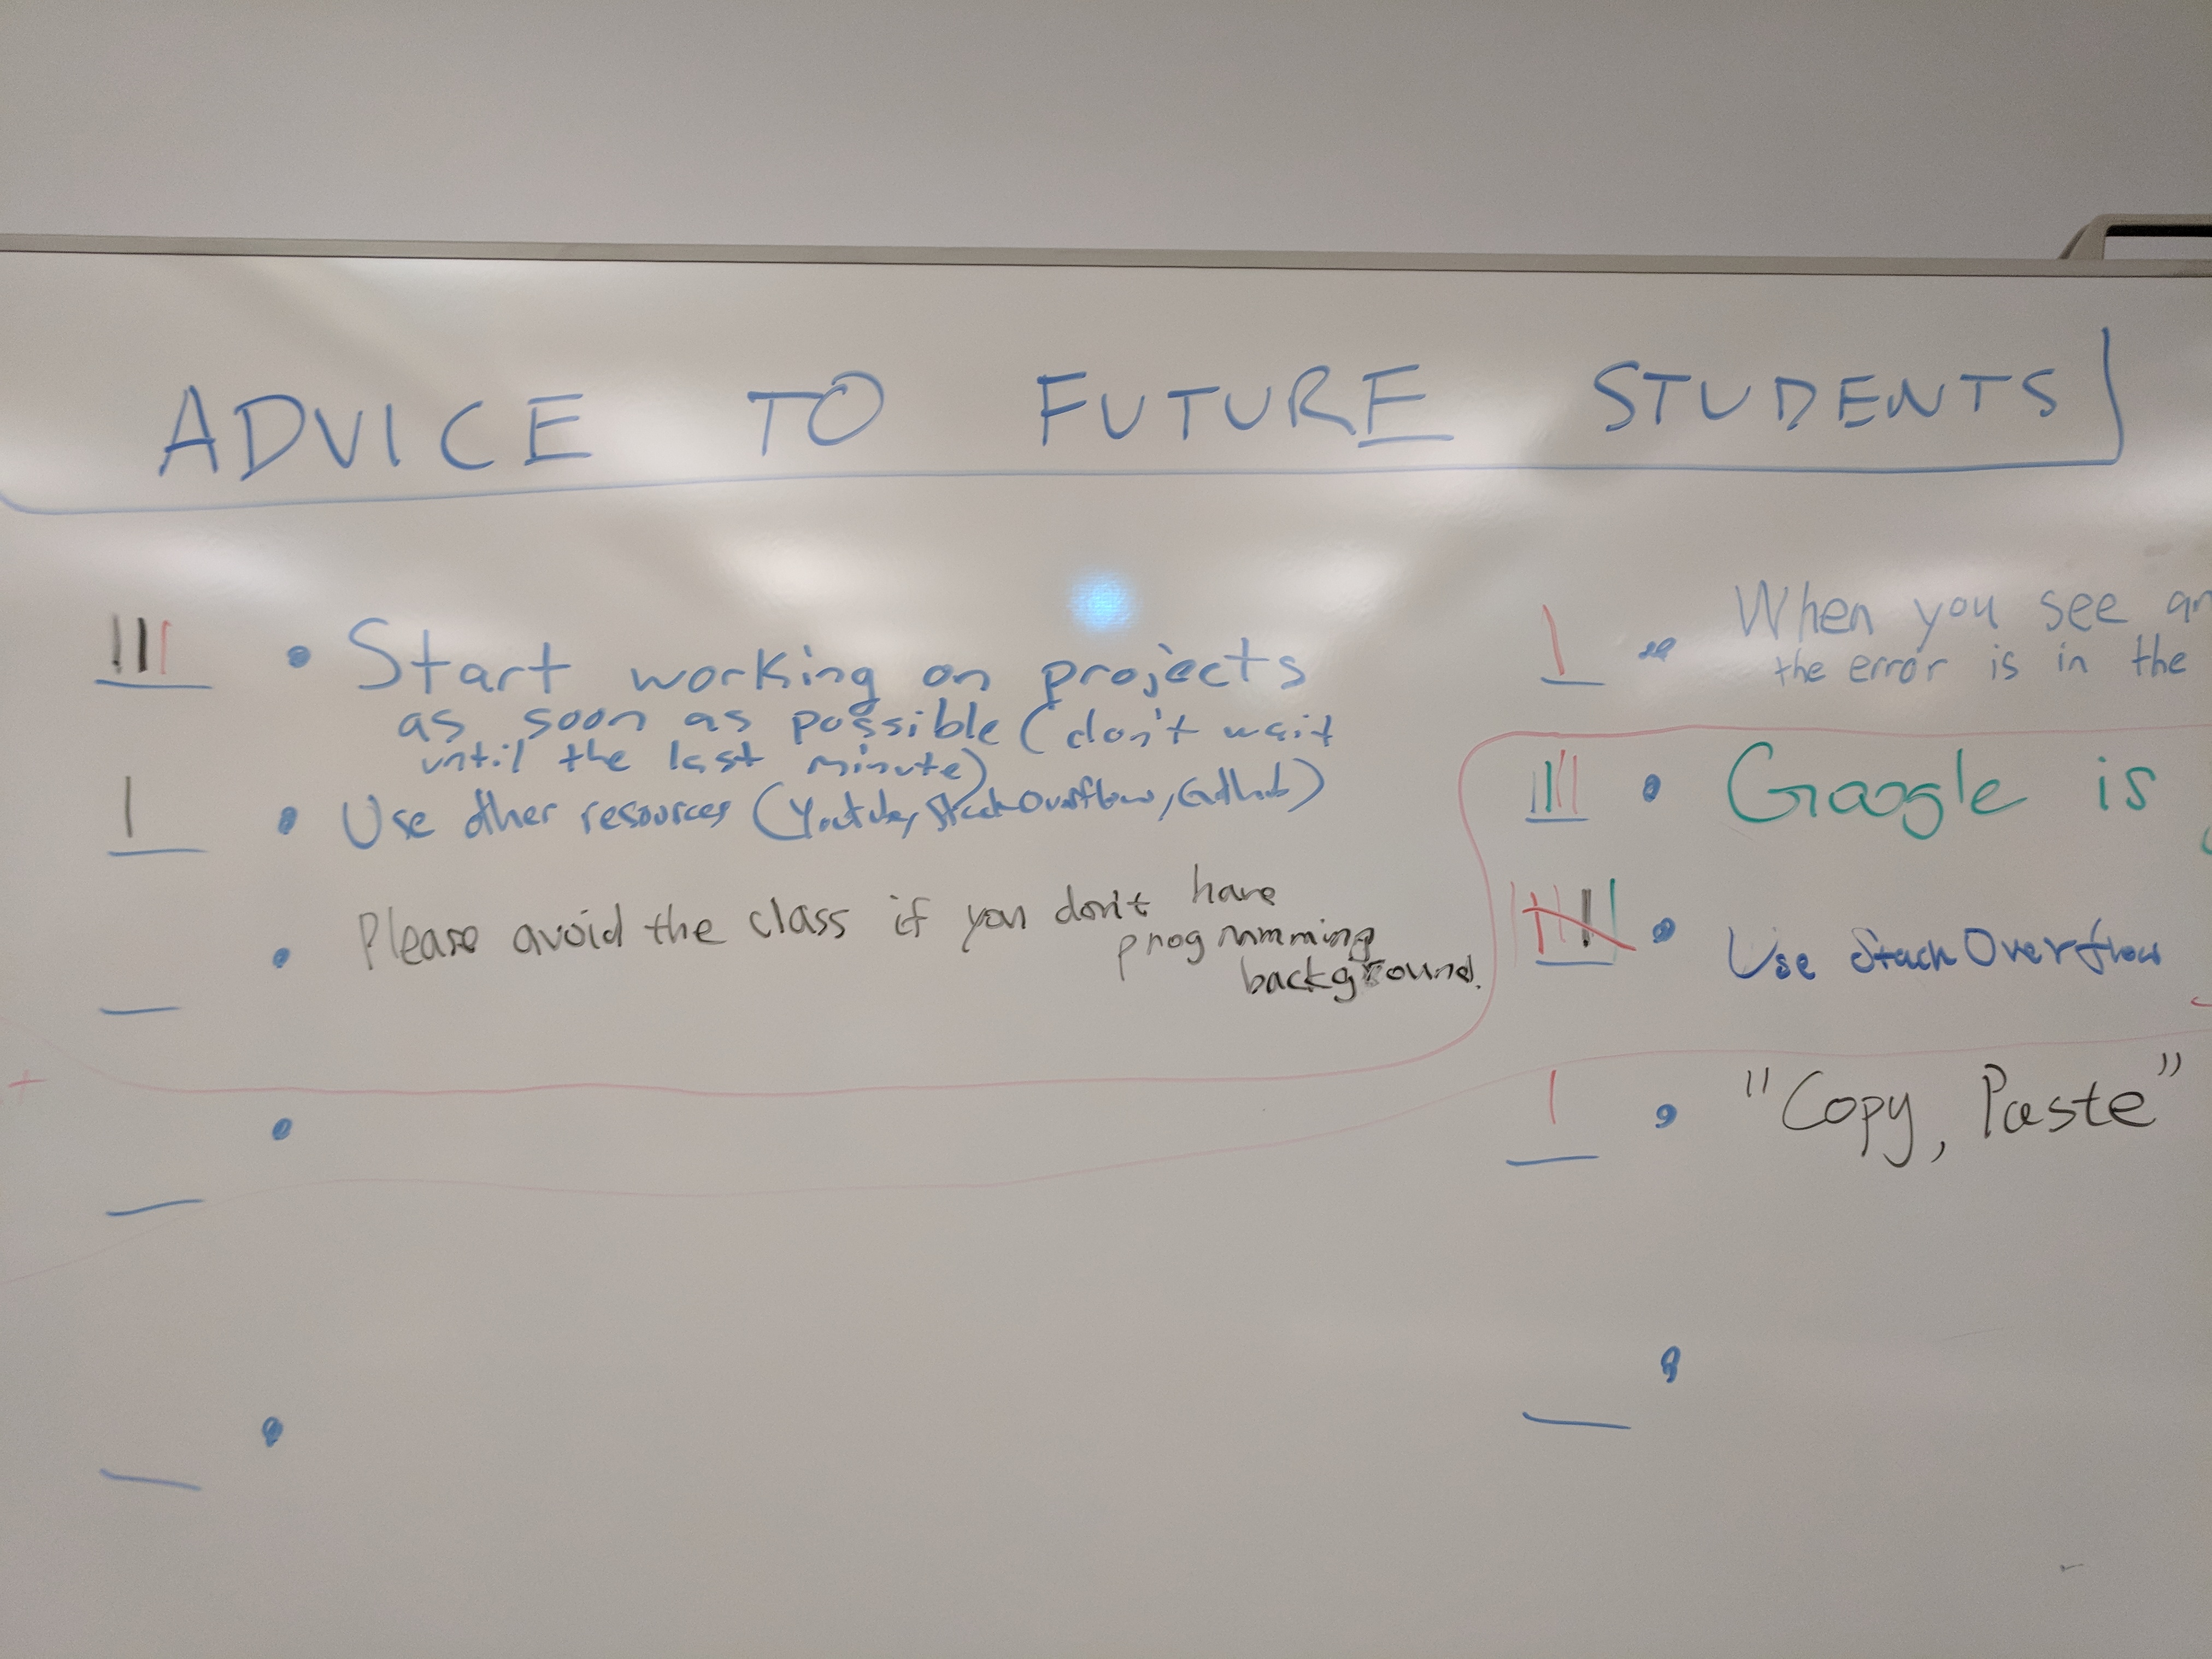 ADVICE TO FUTURE STUDENTS
• Start working on projects
as soon as possible (don't wait
until the last minute)
• Use other resources (Youtube, StackOverflow, Github)
• Please avoid the class if you don't have
programming
background.
• When you see an
the error is in the
• Google is
• Use StackOverflow
• "Copy, Paste"